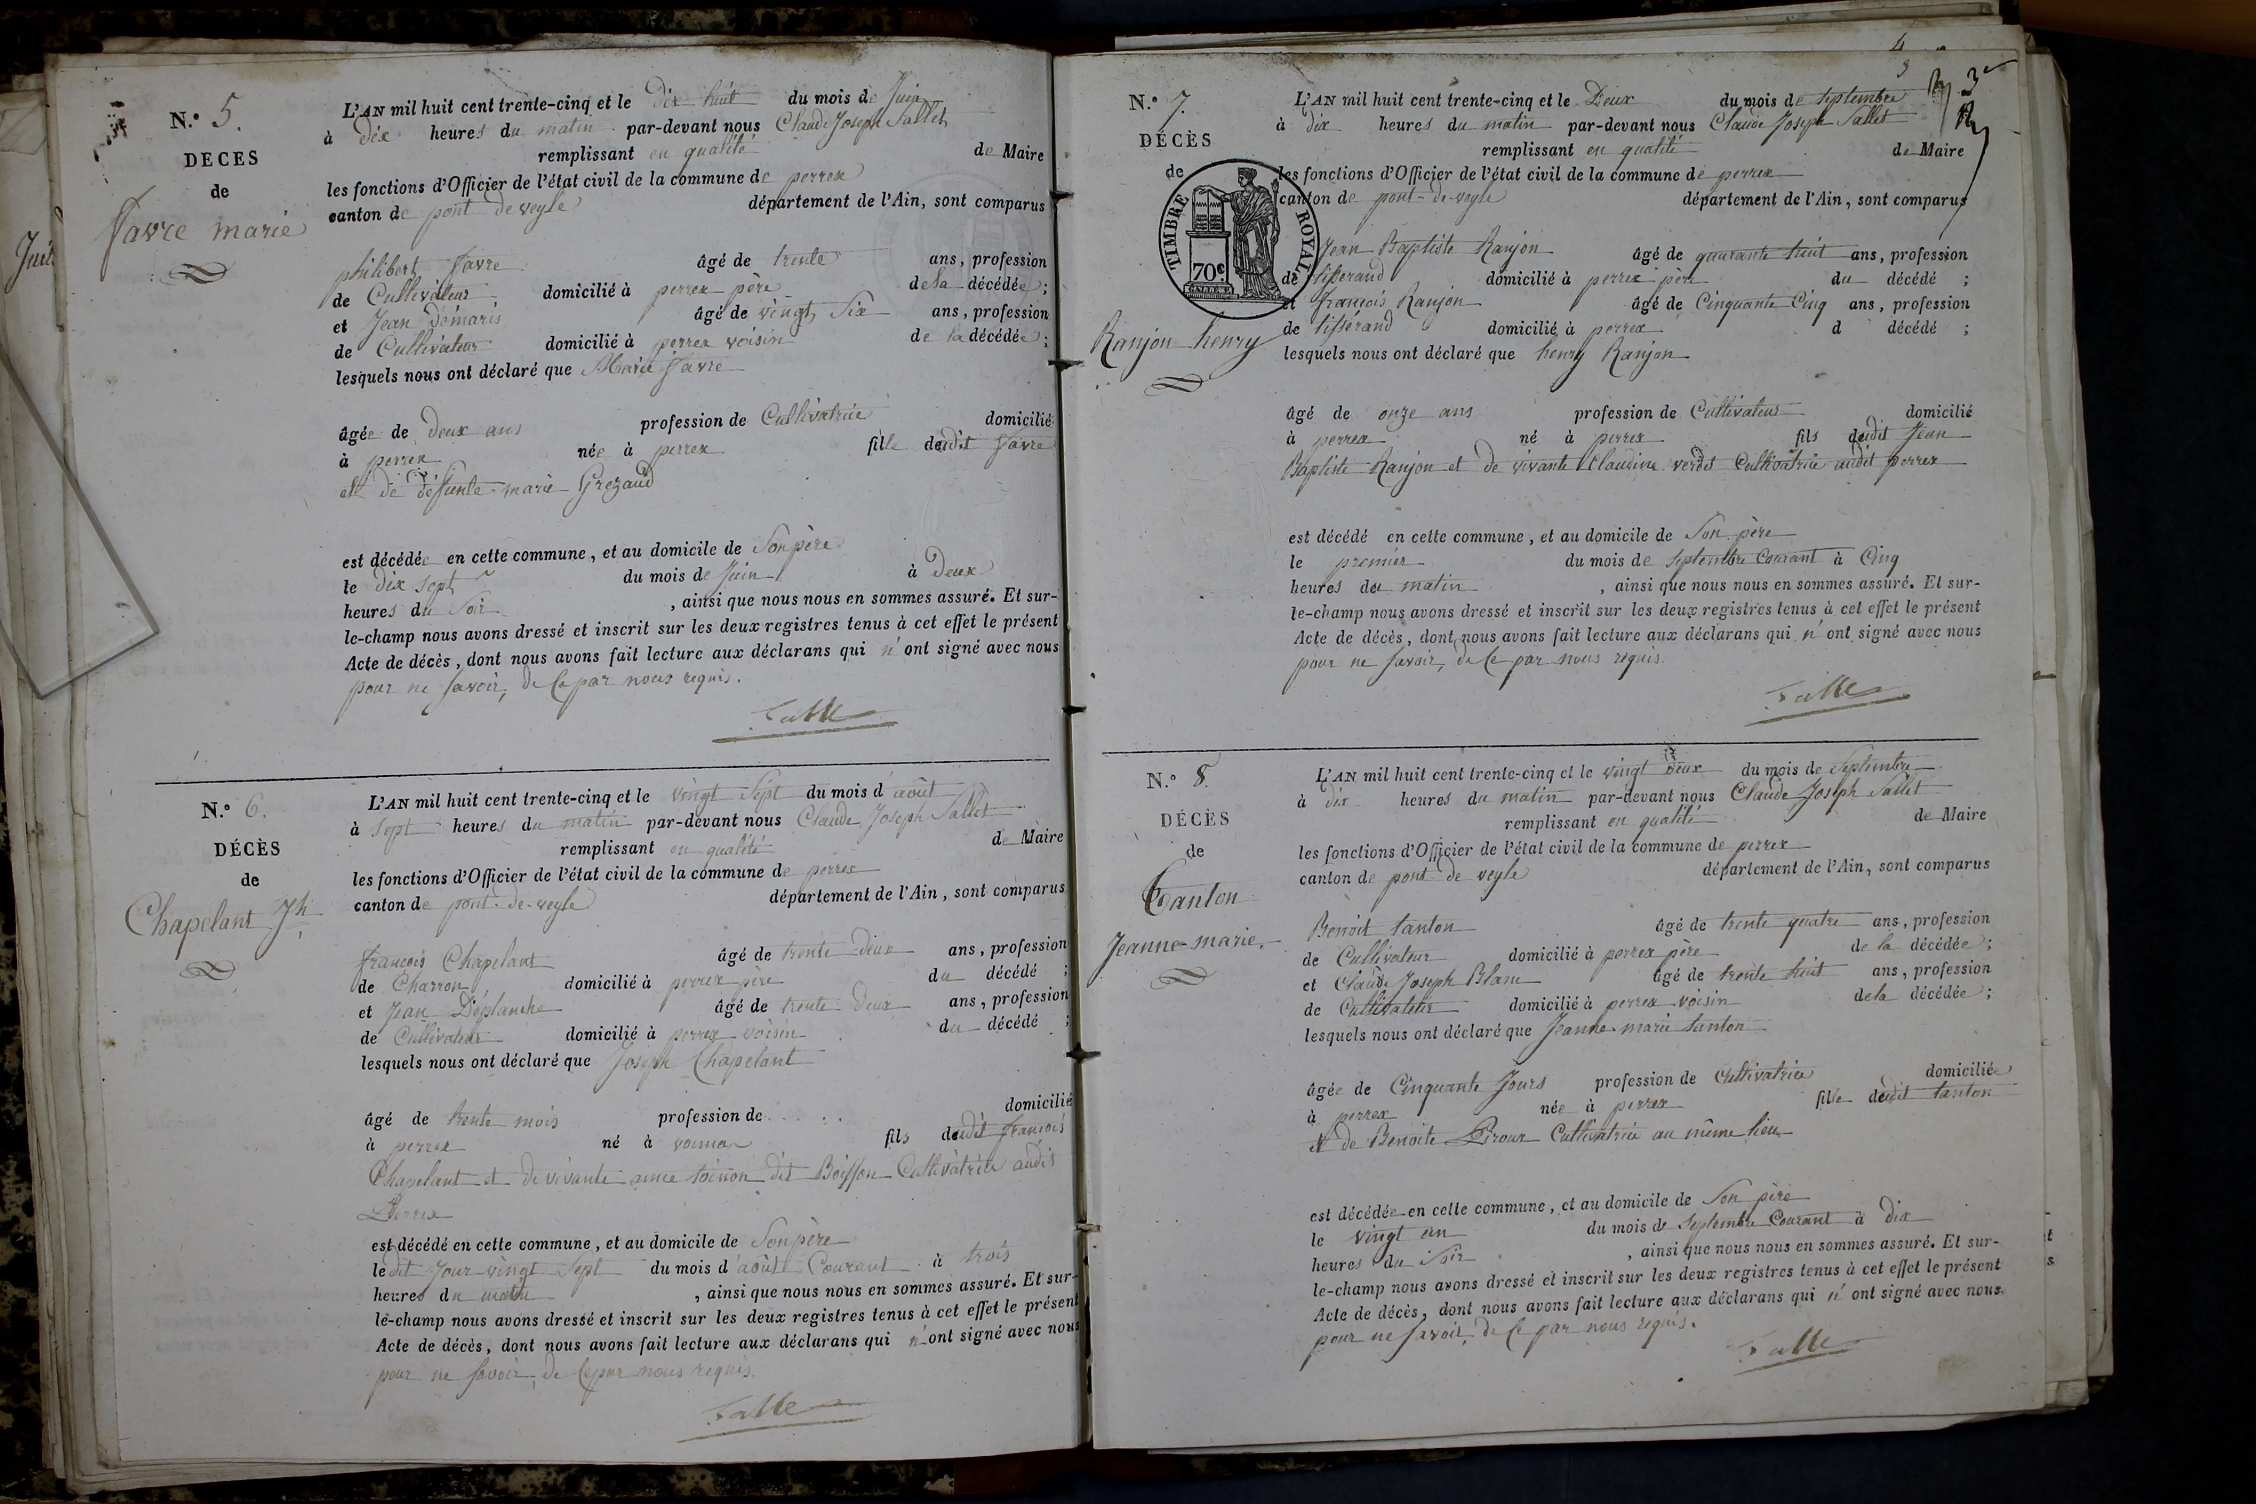 N.º 5.
DECES
de
Favre marie
L'AN mil huit cent trente-cinq et le dix huit du mois de Juin
à dix heures du matin par-devant nous Claude Joseph Sallet
remplissant en qualité de Maire
les fonctions d'Officier de l'état civil de la commune de perrex
canton de pont de veyle département de l'Ain, sont comparus
philibert Favre âgé de trente ans, profession
de Cultivateur domicilié à perrex père de la décédée ;
et Jean Démaris âgé de vingt Six ans, profession
de Cultivateur domicilié à perrex voisin de la décédée ;
lesquels nous ont déclaré que Marie Favre
âgée de deux ans profession de Cultivatrice domicilié
à perrex née à perrex fille dudit Favre
et de défunte marie Grezaud
est décédée en cette commune, et au domicile de Son père
le dix sept du mois de Juin à deux
heures du Soir , ainsi que nous nous en sommes assuré. Et sur-
le-champ nous avons dressé et inscrit sur les deux registres tenus à cet effet le présent
Acte de décès, dont nous avons fait lecture aux déclarans qui n'ont signé avec nous
pour ne savoir, de ce par nous requis.
Sallet
N.º 6.
DÉCÈS
de
Chapelant Jh
L'AN mil huit cent trente-cinq et le vingt Sept du mois d'août
à sept heures du matin par-devant nous Claude Joseph Sallet
remplissant en qualité de Maire
les fonctions d'Officier de l'état civil de la commune de perrex
canton de pont-de-veyle département de l'Ain, sont comparus
françois Chapelant âgé de trente deux ans, profession
de Charron domicilié à perrex père du décédé ;
et Jean Déplanche âgé de trente deux ans, profession
de Cultivateur domicilié à perrex voisin du décédé ;
lesquels nous ont déclaré que Joseph Chapelant
âgé de trente mois profession de domicilié
à perrex né à vonnas fils dudit françois
Chapelant et de vivante dit Boisson Cultivatrice audit
Perrex
est décédé en cette commune, et au domicile de Son père
ledit Jour vingt Sept du mois d'août Courant à trois
heures du matin , ainsi que nous nous en sommes assuré. Et sur-
le-champ nous avons dressé et inscrit sur les deux registres tenus à cet effet le présent
Acte de décès, dont nous avons fait lecture aux déclarans qui n'ont signé avec nous
pour ne savoir, de ce par nous requis.
Sallet
3
N.º 7.
DÉCÈS
de
TIMBRE ROYAL
70c
Ranjon henry
L'AN mil huit cent trente-cinq et le Deux du mois de septembre
à dix heures du matin par-devant nous Claude Joseph Sallet
remplissant en qualité de Maire
les fonctions d'Officier de l'état civil de la commune de perrex
canton de pont-de-veyle département de l'Ain, sont comparus
Jean Baptiste Ranjon âgé de quarante huit ans, profession
de tisserand domicilié à perrex père du décédé ;
et françois Ranjon âgé de Cinquante Cinq ans, profession
de tissérand domicilié à perrex d décédé ;
lesquels nous ont déclaré que henry Ranjon
âgé de onze ans profession de Cultivateur domicilié
à perrex né à perrex fils dudit Jean
Baptiste Ranjon et de vivante Claudine verdet Cultivatrice audit perrex
est décédé en cette commune, et au domicile de Son père
le premier du mois de septembre Courant à Cinq
heures du matin , ainsi que nous nous en sommes assuré. Et sur-
le-champ nous avons dressé et inscrit sur les deux registres tenus à cet effet le présent
Acte de décès, dont nous avons fait lecture aux déclarans qui n'ont signé avec nous
pour ne savoir, de ce par nous requis.
Sallet
N.º 8.
DÉCÈS
de
Tanton
Jeanne-marie.
L'AN mil huit cent trente-cinq et le vingt Deux du mois de Septembre
à dix heures du matin par-devant nous Claude Joseph Sallet
remplissant en qualité de Maire
les fonctions d'Officier de l'état civil de la commune de perrex
canton de pont de veyle département de l'Ain, sont comparus
Benoit tanton âgé de trente quatre ans, profession
de Cultivateur domicilié à perrex père de la décédée ;
et Claude Joseph Blanc âgé de trente huit ans, profession
de Cultivateur domicilié à perrex voisin de la décédée ;
lesquels nous ont déclaré que Jeanne marie tanton
âgée de Cinquante Jours profession de Cultivatrice domiciliée
à perrex née à perrex fille dudit tanton
et de Benoite Cultivatrice au même lieu
est décédée en cette commune, et au domicile de Son père
le vingt un du mois de septembre Courant à dix
heures du Soir , ainsi que nous nous en sommes assuré. Et sur-
le-champ nous avons dressé et inscrit sur les deux registres tenus à cet effet le présent
Acte de décès, dont nous avons fait lecture aux déclarans qui n'ont signé avec nous
pour ne savoir, de ce par nous requis.
Sallet